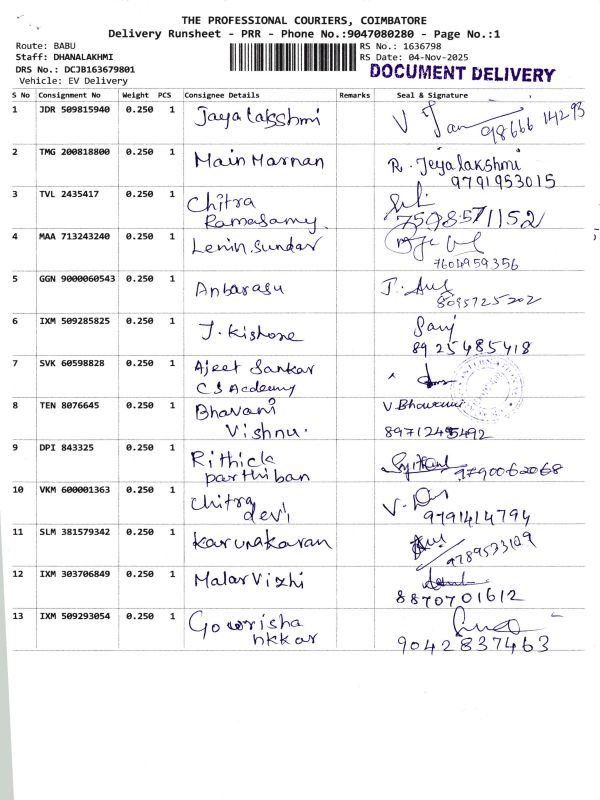 THE PROFESSIONAL COURIERS, COIMBATORE
Delivery Runsheet - PRR - Phone No.:9047080280 - Page No.:1
Route: BABU
Staff: DHANALAKHMI
DRS No.: DCJB163679801
Vehicle: EV Delivery
RS No.: 1636798
RS Date: 04-Nov-2025
DOCUMENT DELIVERY
S No Consignment No Weight PCS Consignee Details Remarks Seal & Signature
1 JDR 509815940 0.250 1 Jayalakshmi
2 TMG 200818800 0.250 1 Main Marnan R. Jeyalakshmi
9791953015
3 TVL 2435417 0.250 1 Chitra
Ramasamy 7598571152
4 MAA 713243240 0.250 1 Lenin.sundar
7604959356
5 GGN 9000060543 0.250 1 Anbarasu
8095725202
6 IXM 509285825 0.250 1 J. Kishore
8925485418
7 SVK 60598828 0.250 1 Ajeet Sankar
CS Acdemy
8 TEN 8076645 0.250 1 Bhavani
Vishnu.
9 DPI 843325 0.250 1 Rithick
parthiban 9790062068
10 VKM 600001363 0.250 1 Chitra
devi 9791414794
11 SLM 381579342 0.250 1 Karunakaran
12 IXM 303706849 0.250 1 Malar Vizhi
8870701612
13 IXM 509293054 0.250 1
9042837463